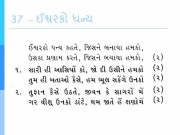 37 - ઈશ્વરકો ધન્ય
ઈશ્વરકો ધન્ય કહતે, જિસને બનાયા હમકો,
ઉસકા પ્રણામ કરતે, જિસને બનાયા હમકો. (૨)
(૨)
૧. સારી હી આશિષોં કો, જો દી ઉસીને હમકો (૨)
તુમ હી બતાઓ કૈસે, હમ ભૂલ સકેંગે ઉનકો (૨)
૨. તુફાન કૈસે ઉઠતે, જીવન કે સાગરોં મેં (૨)
ગર થીશુ ઉનકો ડાંટે, થમ જાતે હૈં ક્ષણોંમેં (૨)